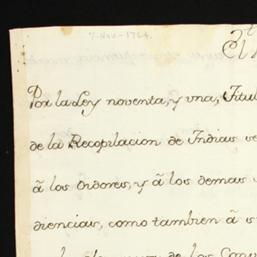 7-Nov-1764.
El
Por la Ley noventa, y una, Titul
de la Recopilacion de Indias
â los Oidores, y â los demas
diencias, como tambien â
de los